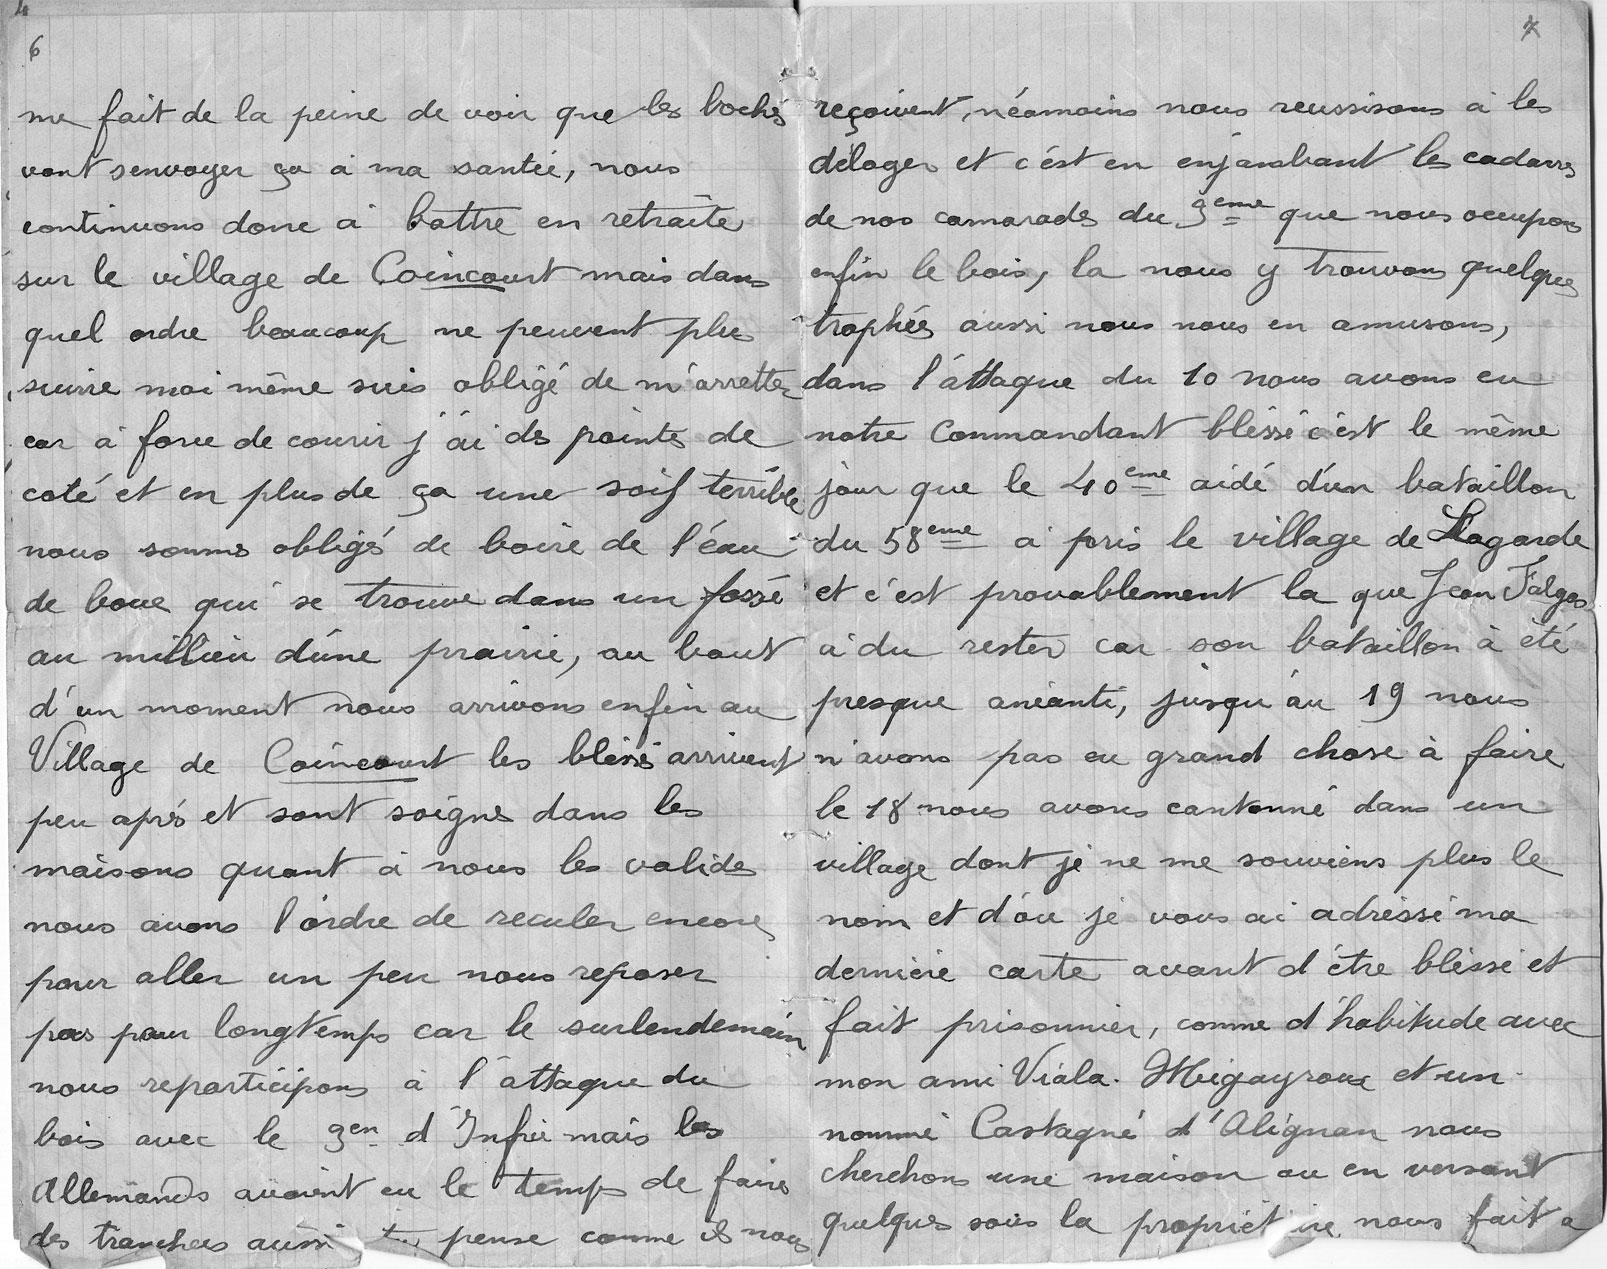 6
me fait de la peine de voir que les boches
vont senvoyer ça à ma santée, nous
continuons donc à battre en retraite
sur le village de Coincourt mais dans
quel ordre beaucoup ne peuvent plus
suivre moi même suis obligé de m'arretter
car à force de courir j'ai des points de
coté et en plus de ça une soif terrible
nous somme obligés de boire de l'éau
de boue qui se trouve dans un fossé
au millieu d'une prairie, au bout
d'un moment nous arrivons enfin au
Village de Coincourt les bléssés arrivent
peu aprés et sont soignes dans les
maisons quant à nous les valides
nous avons l'ordre de reculer encore
pour aller un peu nous reposer
pas pour longtemps car le surlendemain
nous reparticipons à l'attaque du
bois avec le 3em d'Infrie mais les
Allemands avaient eu le temps de faire
des tranchees aussi tu pense comme ils nous
7
reçoivent, néamoins nous reussisons à les
déloger et c'ést en enjambant les cadavres
de nos camarades du 3eme que nous occupons
enfin le bois, la nous y trouvons quelques
trophées aussi nous nous en amusons,
dans l'áttaque du 10 nous avons eu
notre Commandant bléssé c'est le même
jour que le 40eme aidé d'un bataillon
du 58eme a pris le village de Lagarde
et c'est provablement la que Jean Falgas
à du rester car son bataillon à été
presque anéanti, jusqu'au 19 nous
n'avons pas eu grand chose à faire
le 18 nous avons cantonné dans un
village dont je ne me souviens plus le
nom et d'ou je vous ai adréssé ma
dernière carte avant d'être bléssé et
fait prisonnier, comme d'habitude avec
mon ami Viala. Migayroux et un
nommé Castagné d'Alignan nous
cherchons une maison ou en versant
quelques sous la propriét ire nous fait a